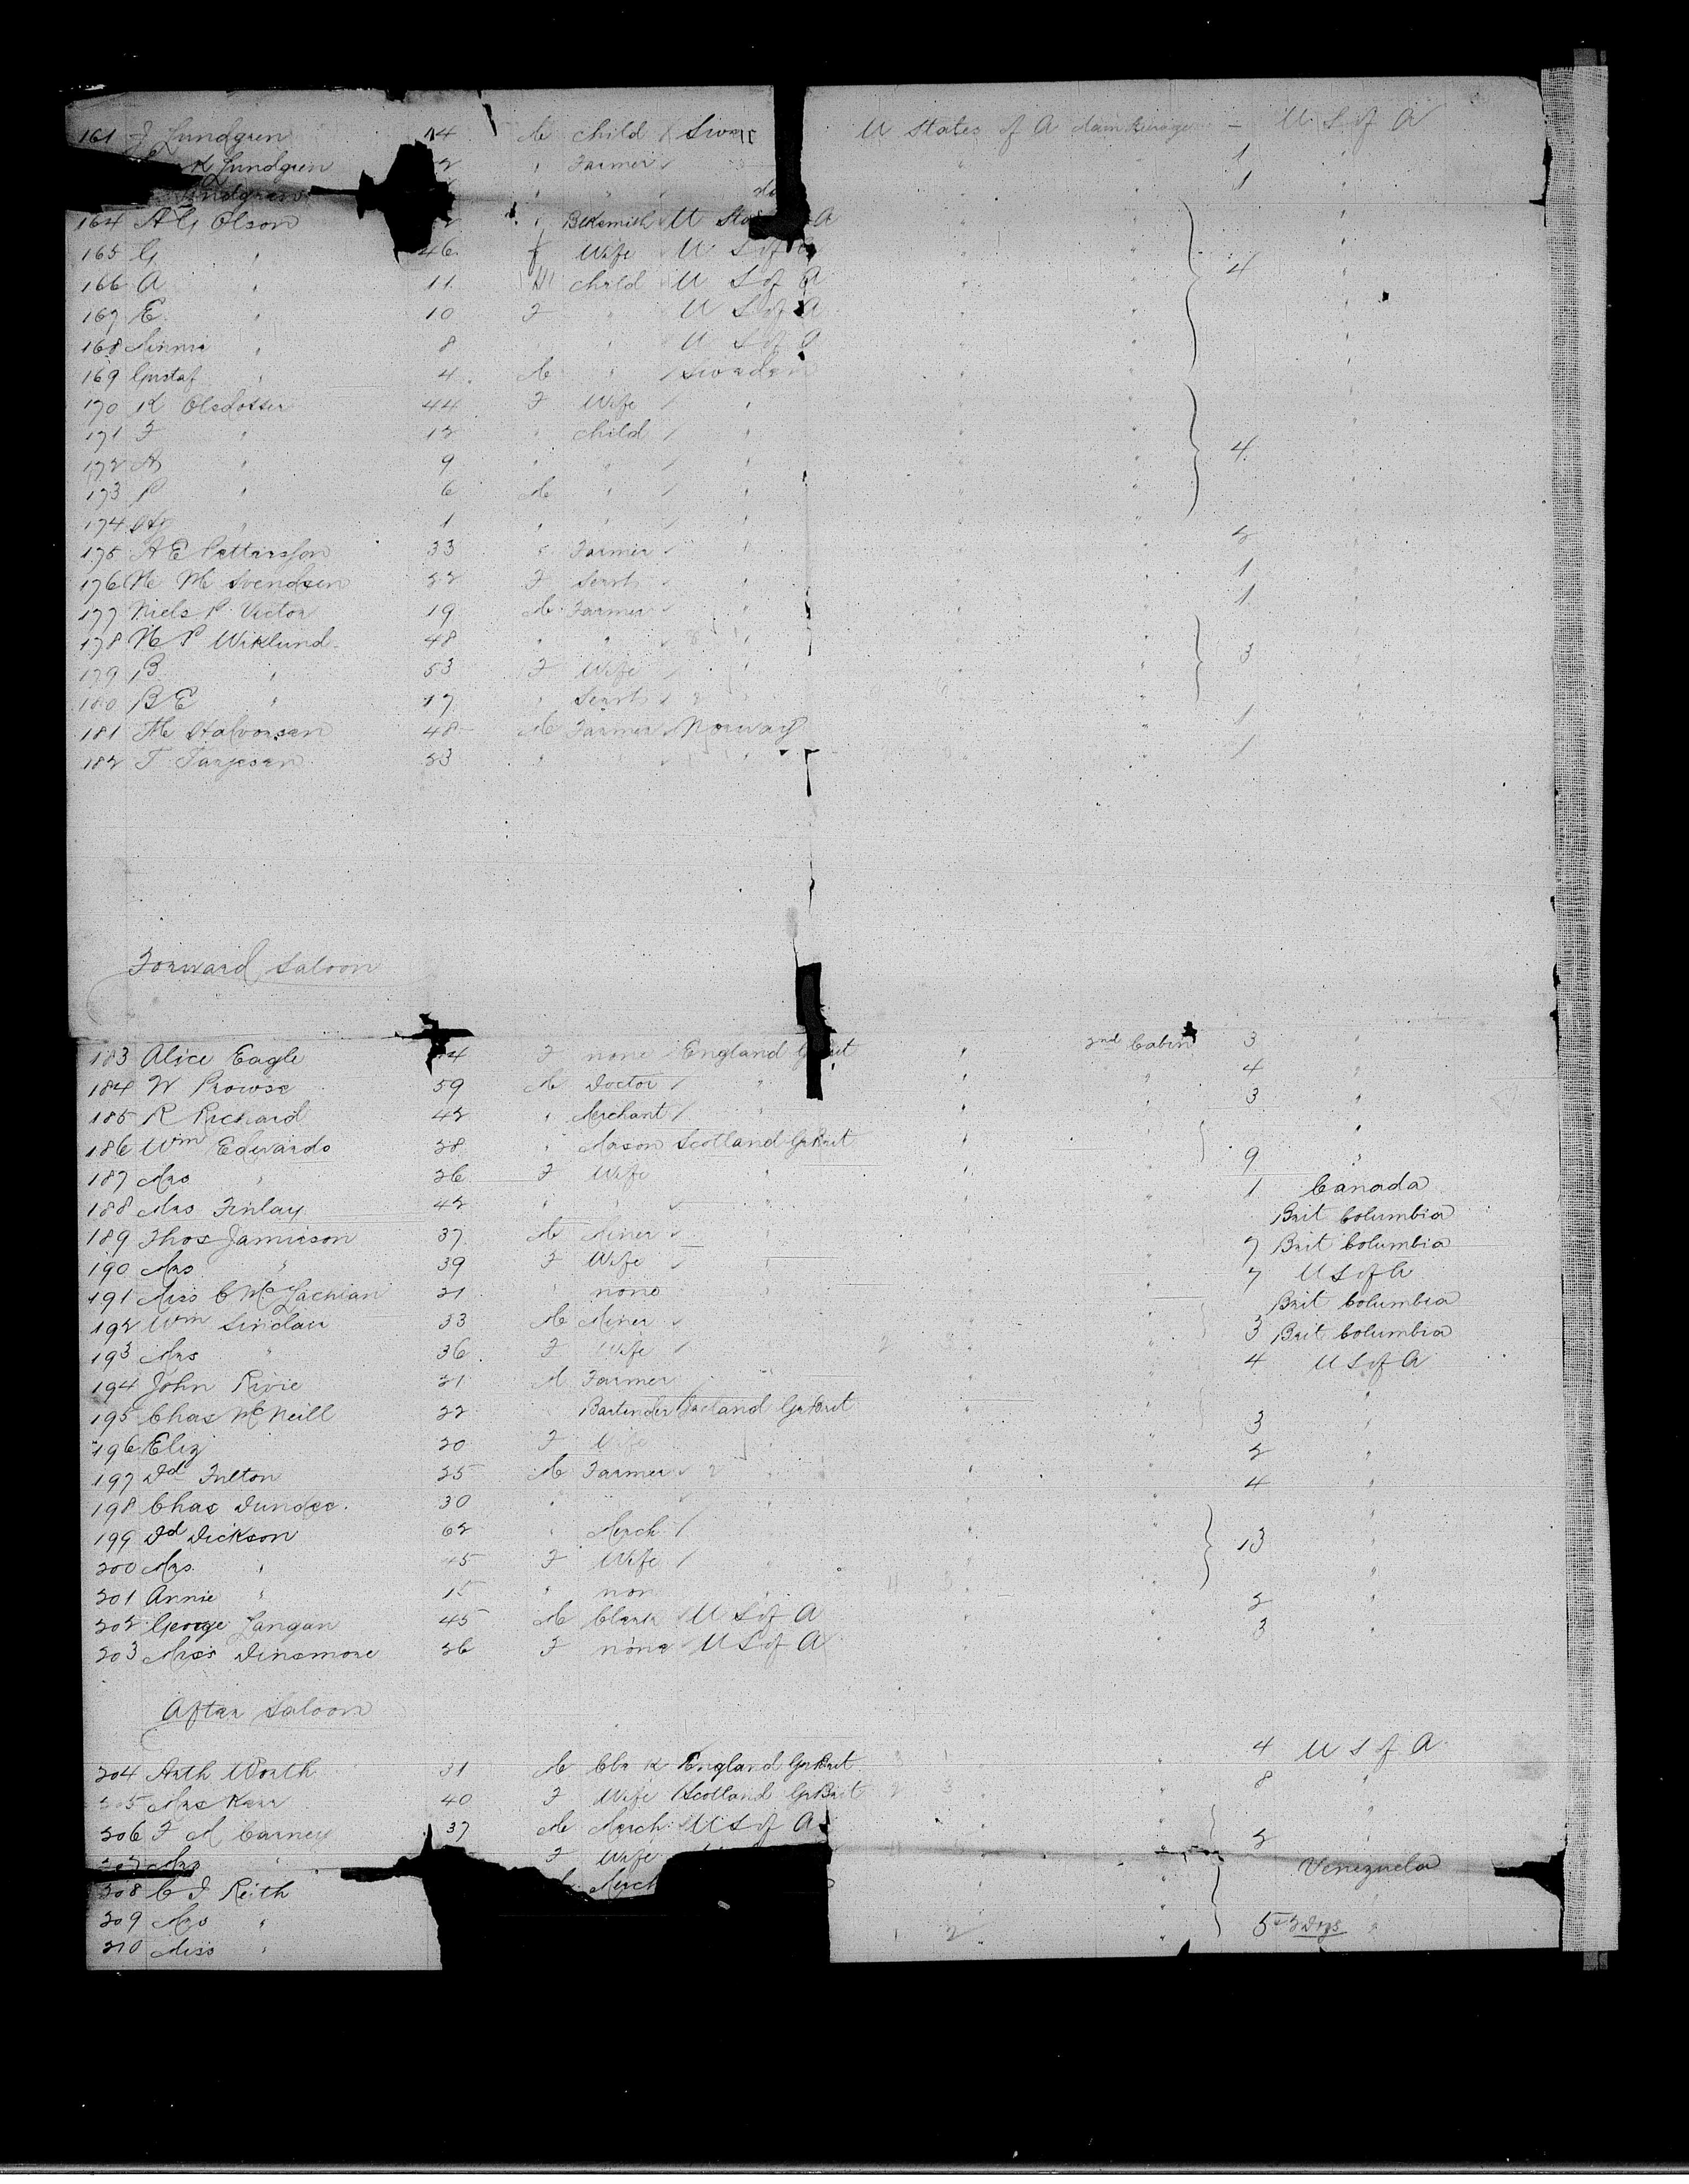 161 J Lundgren 14 M child Swe U States of A Main Steerage - U S of A
K Lundgren " Farmer " " 1 "
Lundgren " " do " " 1 "
164 A G Olson " Blksmith U Sta A " " "
165 G " 46 f Wife U S of A " " "
166 A " 11 M child U S of A " " 4 "
167 E " 10 F " U S of A " " "
168 Minnie " 8 " U S of A " " "
169 Gustaf " 4 M " Sweden " " "
170 K Olsdotter 44 F Wife " " " "
171 F " 12 " child " " " "
172 A " 9 " " " " " 4 "
173 P " 6 M " " " " "
174 " 1 " " " " " "
175 A E Petterssson 33 " Farmer " " " 2 "
176 M M Svendsen 22 F Servt " " " 1 "
177 Niels P Victor 19 M Farmer " " " 1 "
178 N P Wiklund 48 " " " " " "
179 B " 53 F Wife " " " 3 "
180 B E " 17 " Servt " " " "
181 M Halvorsen 48 M Farmer Norway " " 1 "
182 T Tarjesen 23 " " " " 1 "
Forward Saloon
183 Alice Eagle 4 F none England G Brit " 2nd Cabin 3 "
184 W Prowse 59 M Doctor " " " 4 "
185 R Richard 42 " Merchant " " " 3 "
186 Wm Edwards 28 " Mason Scotland Gr Brit " " "
187 Mrs " 26 F Wife " " " 9 "
188 Mrs Finlay 42 " " " " " 1 Canada
189 Thos Jamieson 37 M Miner " " " Brit Columbia
190 Mrs " 39 F Wife " " " 7 Brit Columbia
191 Miss C McLachlan 21 " none " " " 7 U S of A
192 Wm Sinclair 33 M Miner " " " Brit Columbia
193 Mrs " 36 F Wife " 2 3 " " 3 Brit Columbia
194 John Rivie 21 M Farmer " " " 4 U S of A
195 Chas McNeill 22 Bartender Ireland Gr Brit " " "
196 Eliz 20 F Wife " " " 3 "
197 Dd Fulton 25 M Farmer " " " 2 "
198 Chas Dundee 30 " " " " " 4 "
199 Dd Dickson 62 " Merch " " " "
200 Mrs " 45 F Wife " " " 13 "
201 Annie " 15 " non " " " "
202 George Langan 45 M Clerk U S of A " " 2 "
203 Miss Dinsmore 26 F none U S of A " " 3 "
After Saloon
204 Arth Worth 31 M Clk England Gr Brit " " 4 U S of A
205 Mrs Kerr 40 F Wife Scotland Gr Brit 2 3 " " 8 "
206 F M Carney 37 M Merch U S of A " " "
207 Mrs " F Wife " " 2 "
208 C J Reith M Merch " " Venezuela
209 Mrs " " " "
210 Miss " 1 2 " " 5 + 2 Dogs "